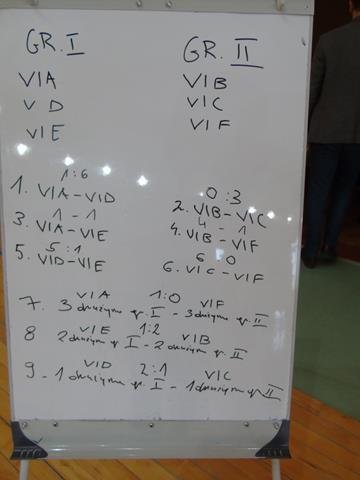 GR. I
VIA
VD
VIE
GR. II
VIB
VIC
VIF
1:6
1. VIA - VID
1 - 1
3. VIA - VIE
5:1
5. VID - VIE
0:3
2. VIB - VIC
4 - 1
4. VIB - VIF
6 0
6. VIC - VIF
VIA 1:0 VIF
7. 3 drużyna gr. I - 3 drużyna gr. II
VIE 1:2 VIB
8 2 drużyna gr I - 2 drużyna gr II
VID 2:1 VIC
9 - 1 drużyna gr. I - 1 drużyna gr II